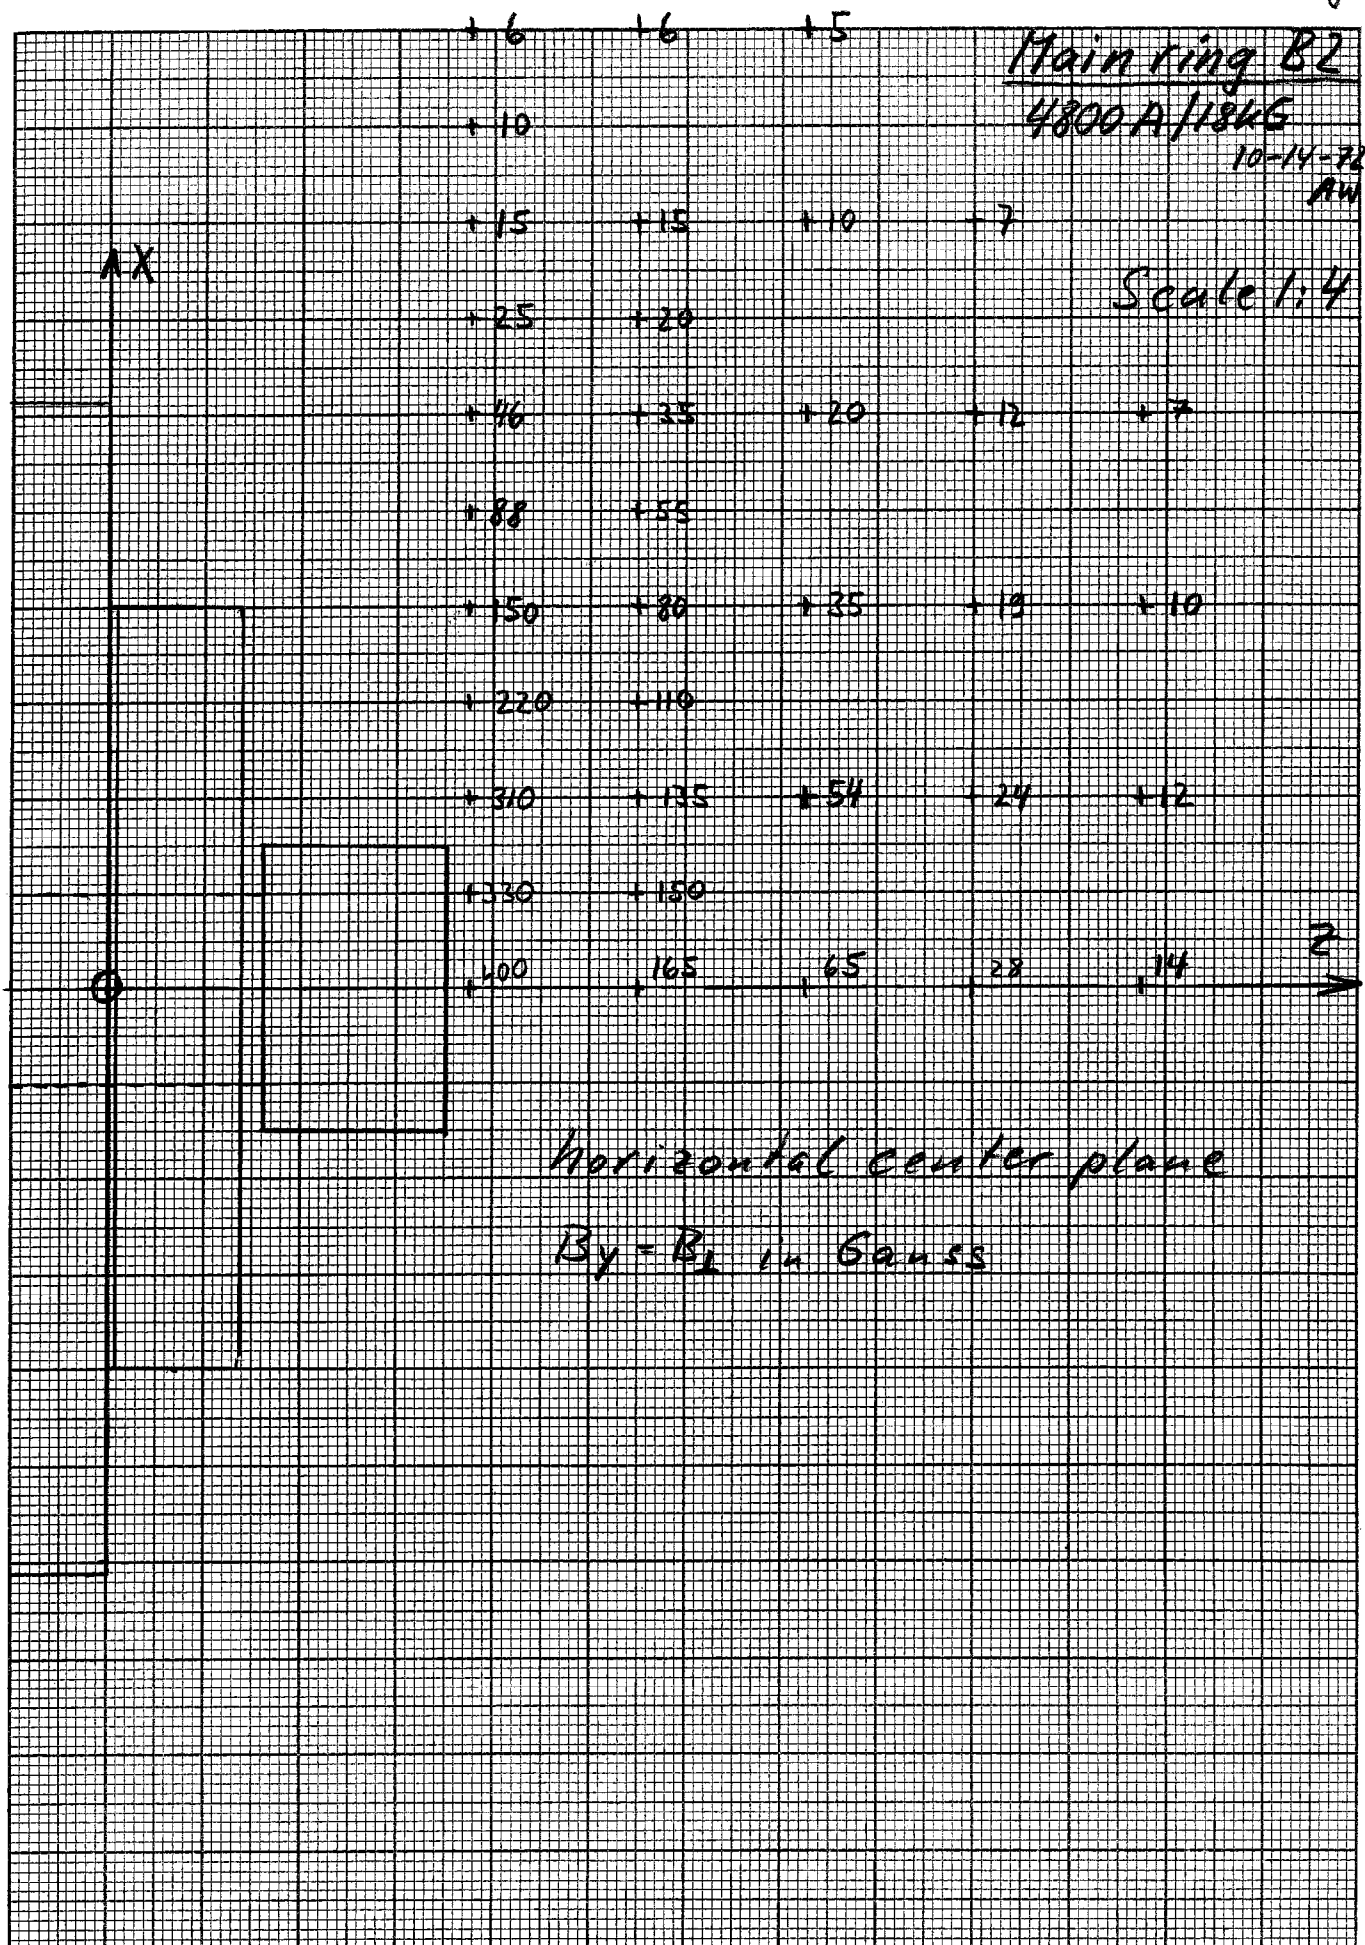 +6 +6 +5
Main ring B2
4800 A/18kG
+10
10-14-72
AW
+15 +15 +10 +7
X
Scale 1:4
+25 +20
+46 +35 +20 +12 +7
+88 +55
+150 +80 +35 +19 +10
+220 +110
+310 +135 +54 24 +12
+330 +150
Z
400 165 65 28 14
horizontal center plane
By = B⊥ in Gauss